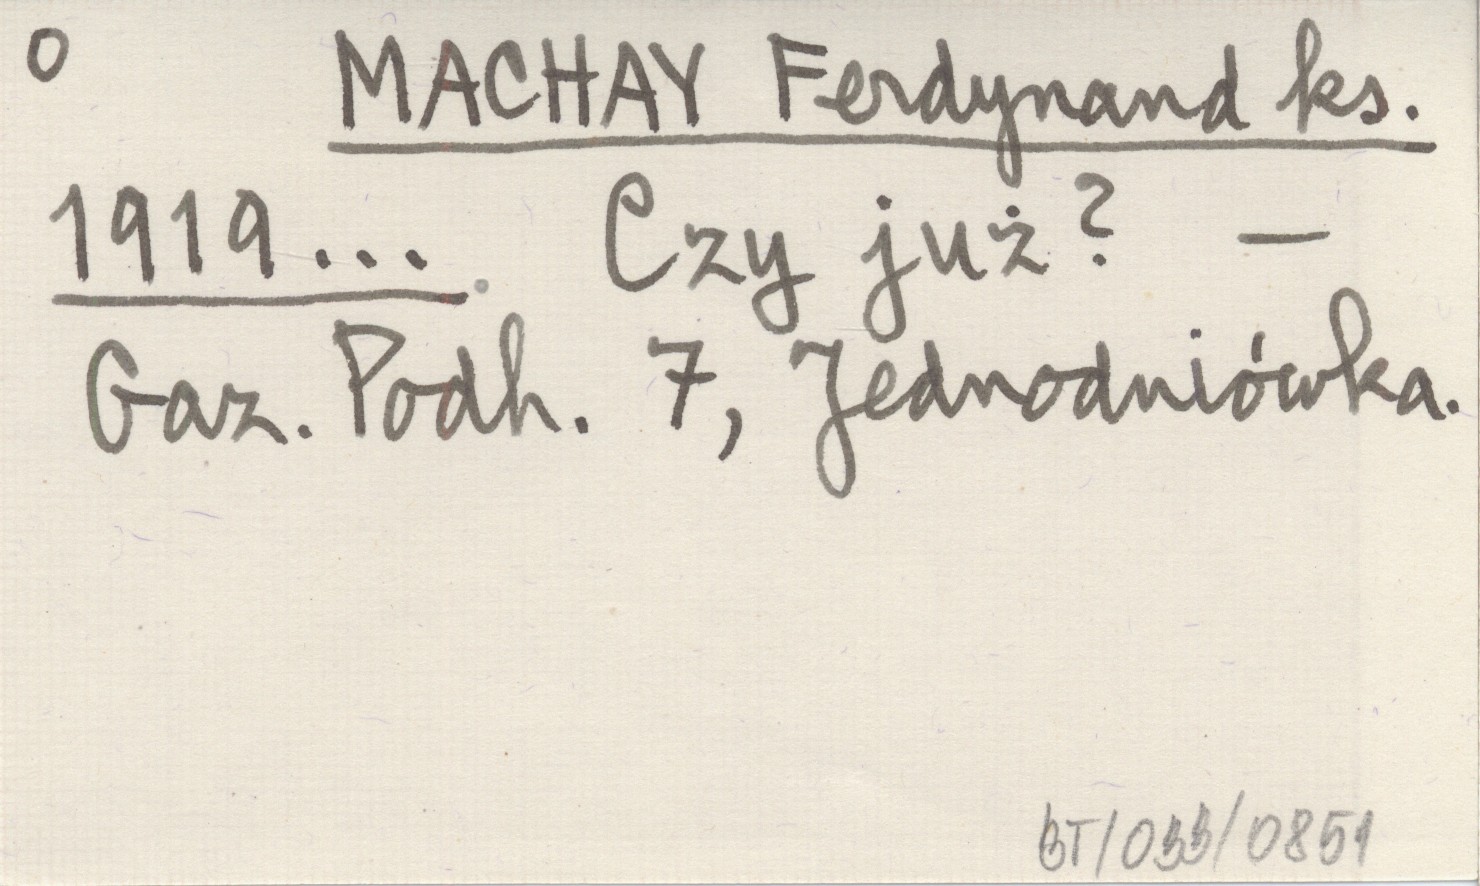 O MACHAY Ferdynand ks.
1919... Czy już? —
Gaz. Podh. 7, Jednodniówka.
BT/033/0851